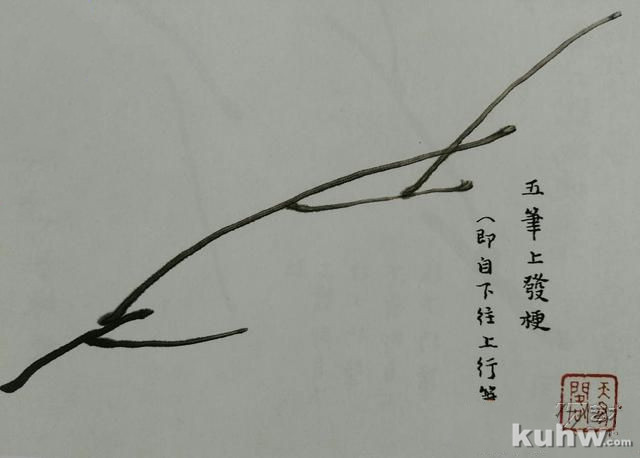 五筆上發梗
（即自下往上行筆
kuhw.com